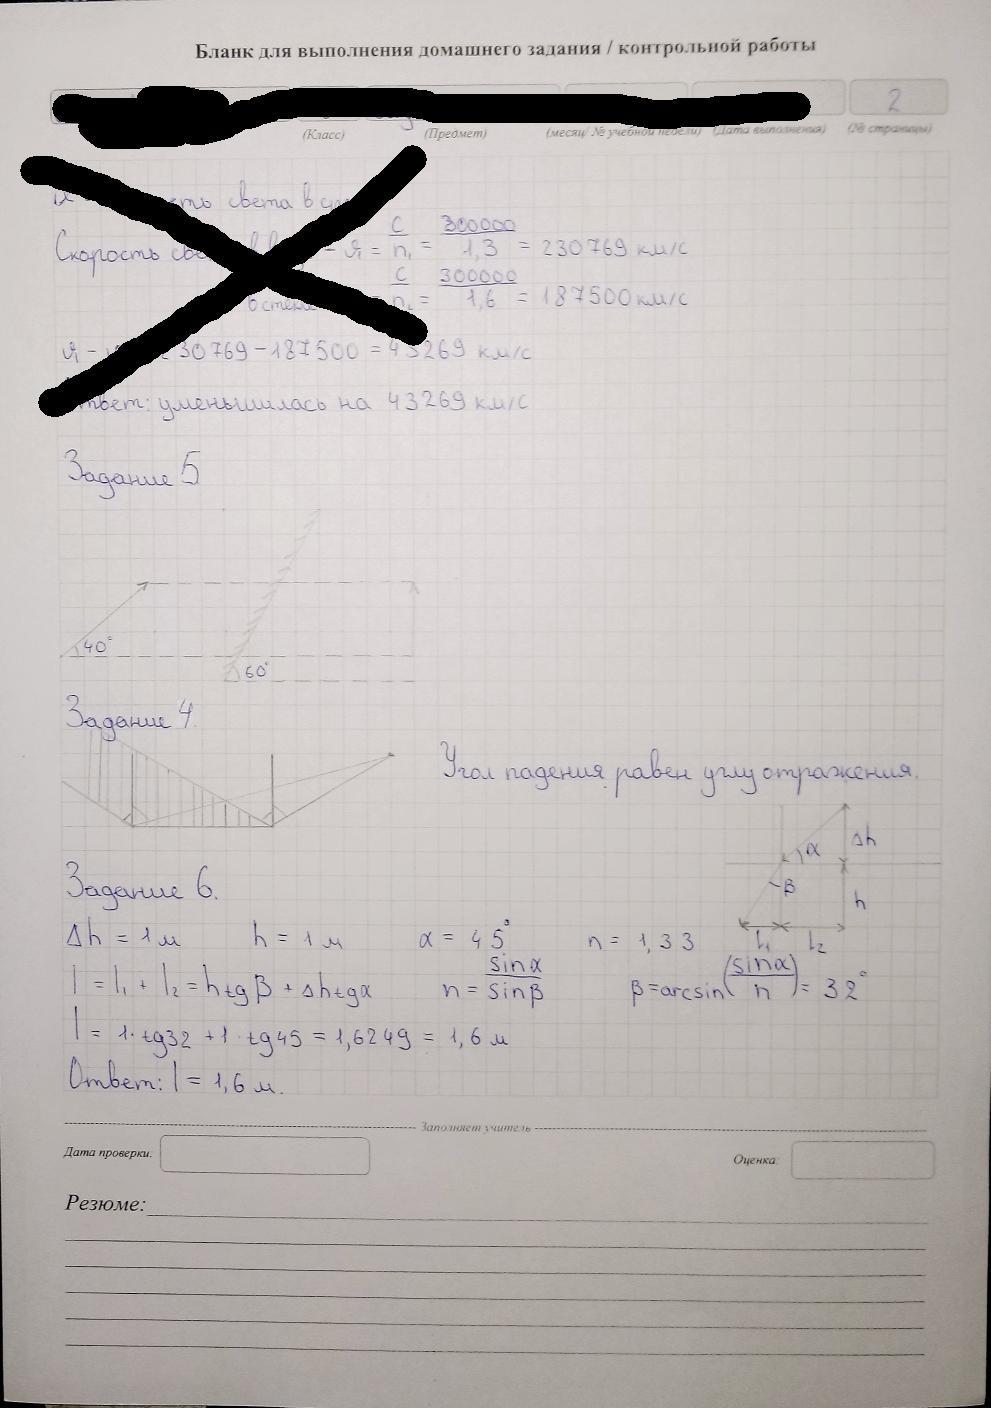 Бланк для выполнения домашнего задания / контрольной работы
2
(Класс) (Предмет) (месяц/ № учебной недели) (Дата выполнения) (№ страницы)
света в
Скорость = c/n₁ = 300000/1,3 = 230769 км/с
c/n₂ = 300000/1,6 = 187500 км/с
30769 - 187500 = 43269 км/с
Ответ: уменьшилась на 43269 км/с
Задание 5
40°
60°
Задание 4.
Угол падения равен углу отражения.
Δh
α
β
h
l₁ l₂
Задание 6.
Δh = 1 м h = 1 м α = 45° n = 1,33
l = l₁ + l₂ = htgβ + Δhtgα n = sinα/sinβ β = arcsin(sinα/n) = 32°
l = 1·tg32 + 1·tg45 = 1,6249 = 1,6 м
Ответ: l = 1,6 м.
Заполняет учитель
Дата проверки: Оценка:
Резюме: